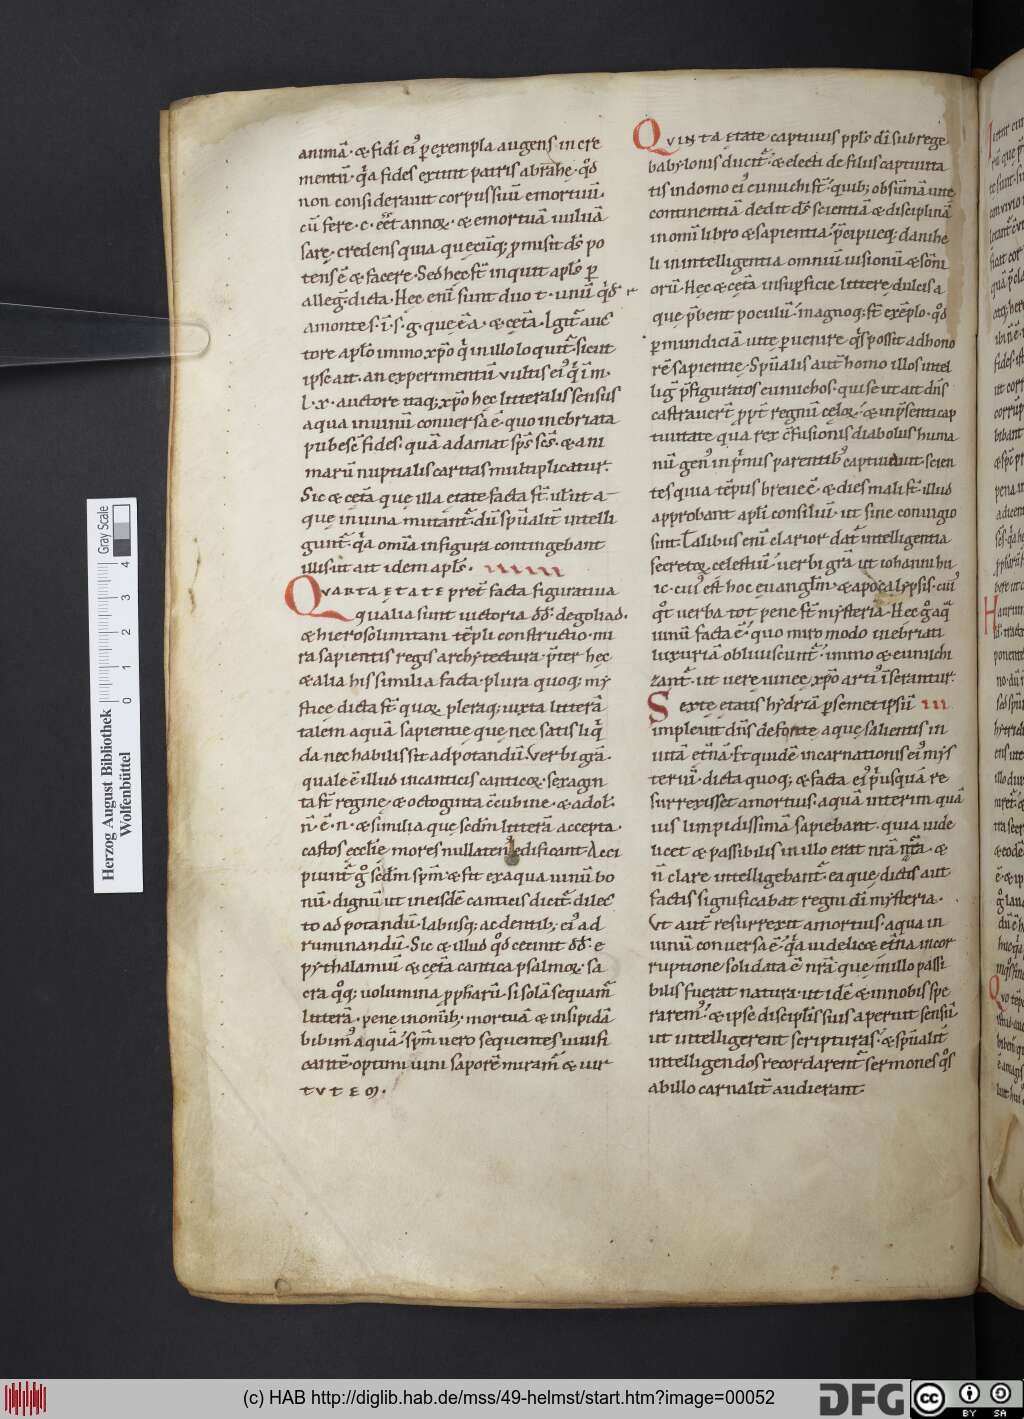 animā · & fidi ei᾽ p exempla augens · in cre
mentū · q̄a fides extitit patris abrahe · qđ
non considerauit corpus suū emortuū ·
cū fere · c · eēt annoꝝ · & emortuā uuluā
sarę · credens quia quęcūq; pmisit dn̄s po
tens ē & facere · Sed hęc st̄ inquit apl's p
allegā dicta · Hęc enī sunt duo t · unū q̄d
tore apl'o immo xp̄o q̄ in illo loquit̄ · sicut
ipse ait · an experimentū uultis ei᾽ q̄ ī m ·
l · x · auctore itaq; xp̄o hęc litteralis sensus
aqua in uinū conuersa ē · quo inebriata
pubesc̄ fides · quā adamat sp̄s sc̄s · & ani
marū nuptialis caritas multiplicatur ·
Sic & cęt̄a quę illa etate facta st̄ · ul' ut a
quę in uina mutant̄ · dū sp̄ualit̄ intelli
gunt̄ · q̄a om̄ia in figura contingebant
illis ut ait idem apl's ·
QVARTA ETATE pret̄ facta figuratiua
qualia sunt uictoria dđ de goliad ·
& hierosolimitani tēpli constructio · mi
ra sapientis regis archytectura · p̄ter hęc
& alia his similia facta · plura quoq; my
stice dicta st̄ · quoꝝ pleraq; iuxta litterā
talem aquā sapientię quę nec satis liq̄
da nec habilis sit ad potandū. Verbi grā ·
quale ē illud in canticis canticoꝝ · sexagin
ta st̄ regine · & octoginta c̄cubine · & adol' ·
n̄ · ē · n · & similia quę scdm̄ litterā accepta ·
castos ecclie mores nullaten᾽ edificant · Acci
piunt̄ g̊ scdm̄ sp̄m · & fit ex aqua uinū bo
nū · dignū ut in eisdē canticis dicit̄ · dilec
to ad potandū · labiisq; ac dentib; ei᾽ ad
ruminandū · Sic & illud qđ cecinit dđ · e
pythalamiū & cęt̄a cantica psalmoꝝ · sa
cra q̊q; uolumina pphetarū · si solā sequam̄
litterā · pene in om̄ib; · mortuā & insipidā
bibim᾽ aquā · sp̄m uero sequentes uiuifi
cantē · optimi uini saporē miram̄ & uir
TVTEM ·
QVINTA ETATE captiuus ppl's di sub rege
babylonis ducit̄ · & electi de filiis captiuita
tis in domo ei᾽ eunuchi st̄ · quib; ob sum̄ā uite
continentiā dedit dn̄s scientiā & disciplinā
in omī libro & sapientia · p̄cipueq; danihe
li in intelligentia omniū uisionū & som̄i
orū · Hęc & cęt̄a in supficie littere dulcis a
quę p̄bent poculū · magnoq; st̄ exēplo · qđ
p mundiciā uite puenire q̄s possit ad hono
rē sapientię · Sp̄ualis aut̄ homo illos intel
ligit p̄figuratos eunuchos · qui se ut ait dn̄s
castrauert̄ ppt̄ regnū cęloꝝ · & in p̄senti cap
tiuitate qua rex c̄fusionis diabolus huma
nū gen᾽ in p̄mis parentib᾽ captiuauit · scien
tes quia tēpus breue ē · & dies mali st̄ · illud
approbant apl'i consiliū · ut sine coniugio
sint · Talibus enī clarior dat̄ intelligentia
secretoꝝ celestiū · uerbi grā ut iohanni hu
ic · cui᾽ est hoc euanglm̄ · & apocalypsis · cui᾽
q̊t uerba tot pene st̄ mysteria · Hęc g̊ aq̄
uinū facta ē · quo miro modo inebriati
luxuriā obliuiscunt̄ · immo & eunuchi
zant̄ · ut uere uineę xp̄o artī inserantur ·
Sexte etatis hydriā p semet ipsū
impleuit dn̄s de fonte aquę salientis in
uitā et̄nā · Et quidē incarnationis ei᾽ mys
teriū · dicta quoq; & facta ei᾽ p̄usquā re
surrexisset a mortuis · aquā interim quā
uis limpidissimā sapiebant · quia uide
licet & passibilis in illo erat nr̄a nat̄a · &
n̄ clare intelligebant̄ · ea quę dictis aut
factis significabat regni di mysteria ·
Vt aut̄ resurrexit a mortuis · aqua in
uinū conuersa ē · q̄a uidelic& et̄na incor
ruptione solidata ē nr̄a · quę in illo passi
bilis fuerat natura · ut idē & in nobis spe
rarem᾽ · & ipse discipl'is suis aperuit sensū
ut intelligerent scripturas · & sp̄ualit̄
intelligendos recordarent̄ sermones q̊s
ab illo carnalit̄ audierant ·
Herzog August Bibliothek
Wolfenbüttel
Gray Scale
0 1 2 3 4
(c) HAB http://diglib.hab.de/mss/49-helmst/start.htm?image=00052
DFG
cc BY SA